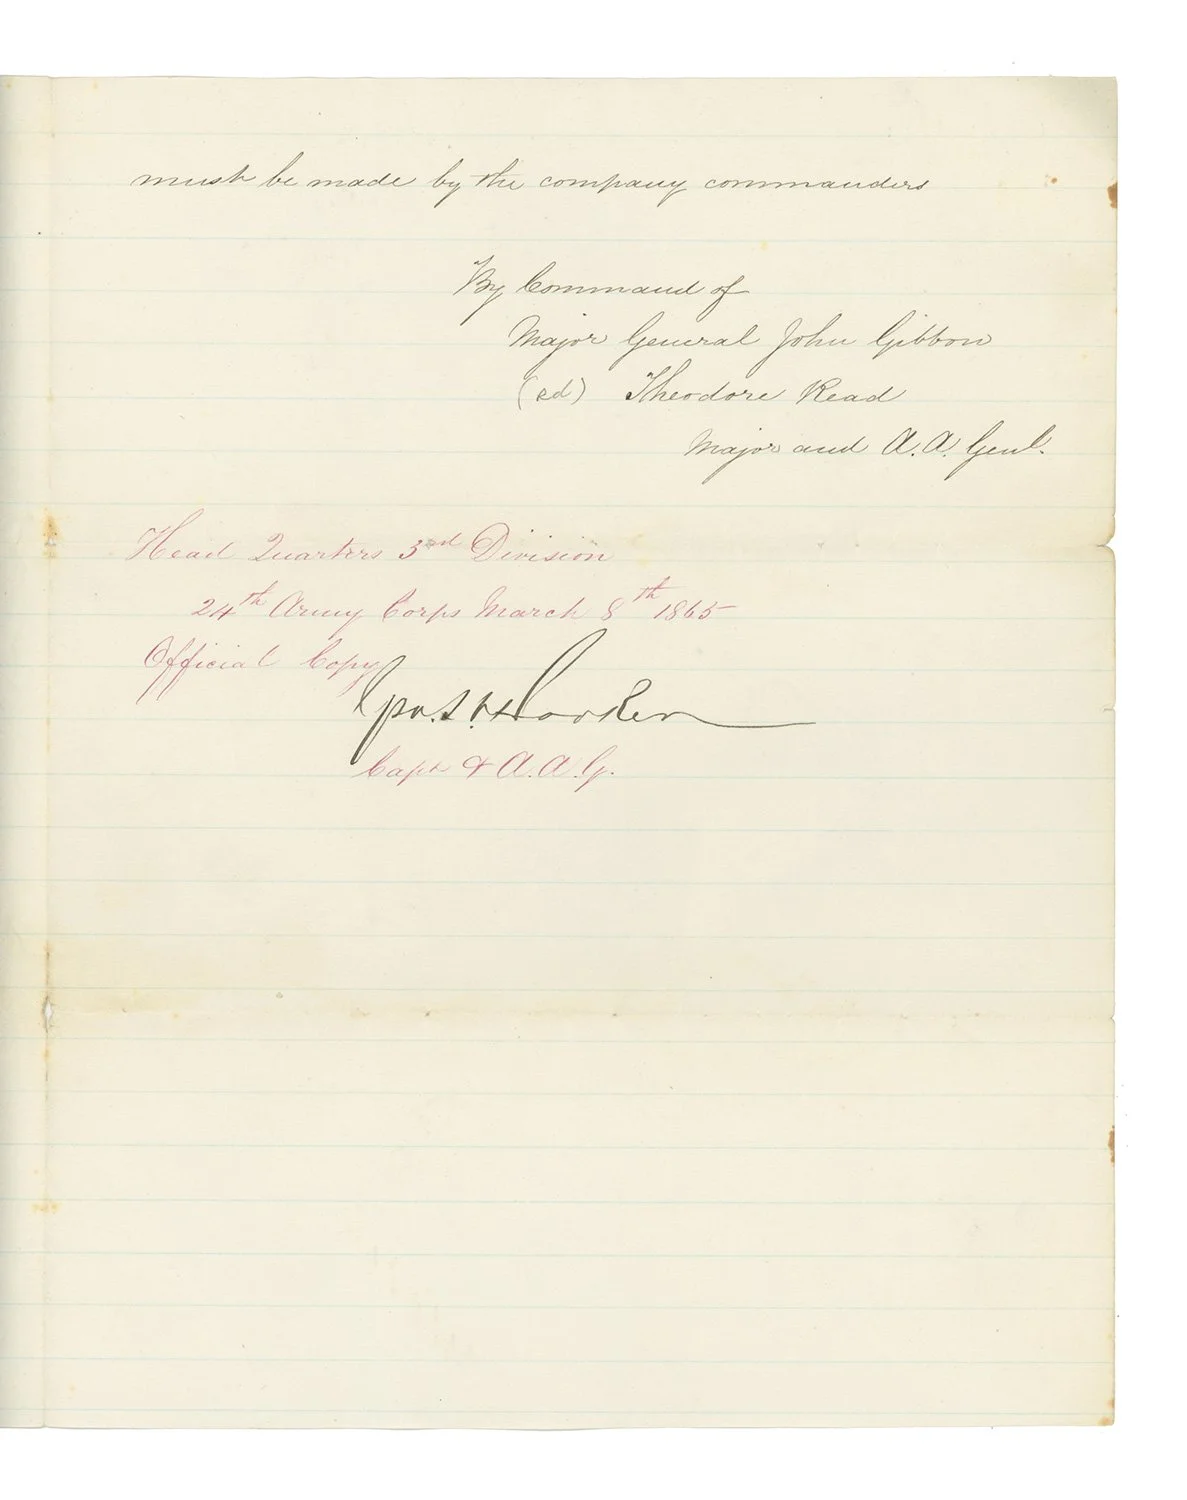 must be made by the company commanders
By Command of
Major General John Gibbon
(sd) Theodore Read
Major and A. A. Genl.
Head Quarters 3rd Division
24th Army Corps March 8th 1865
Official Copy
Capt & A. A. G.